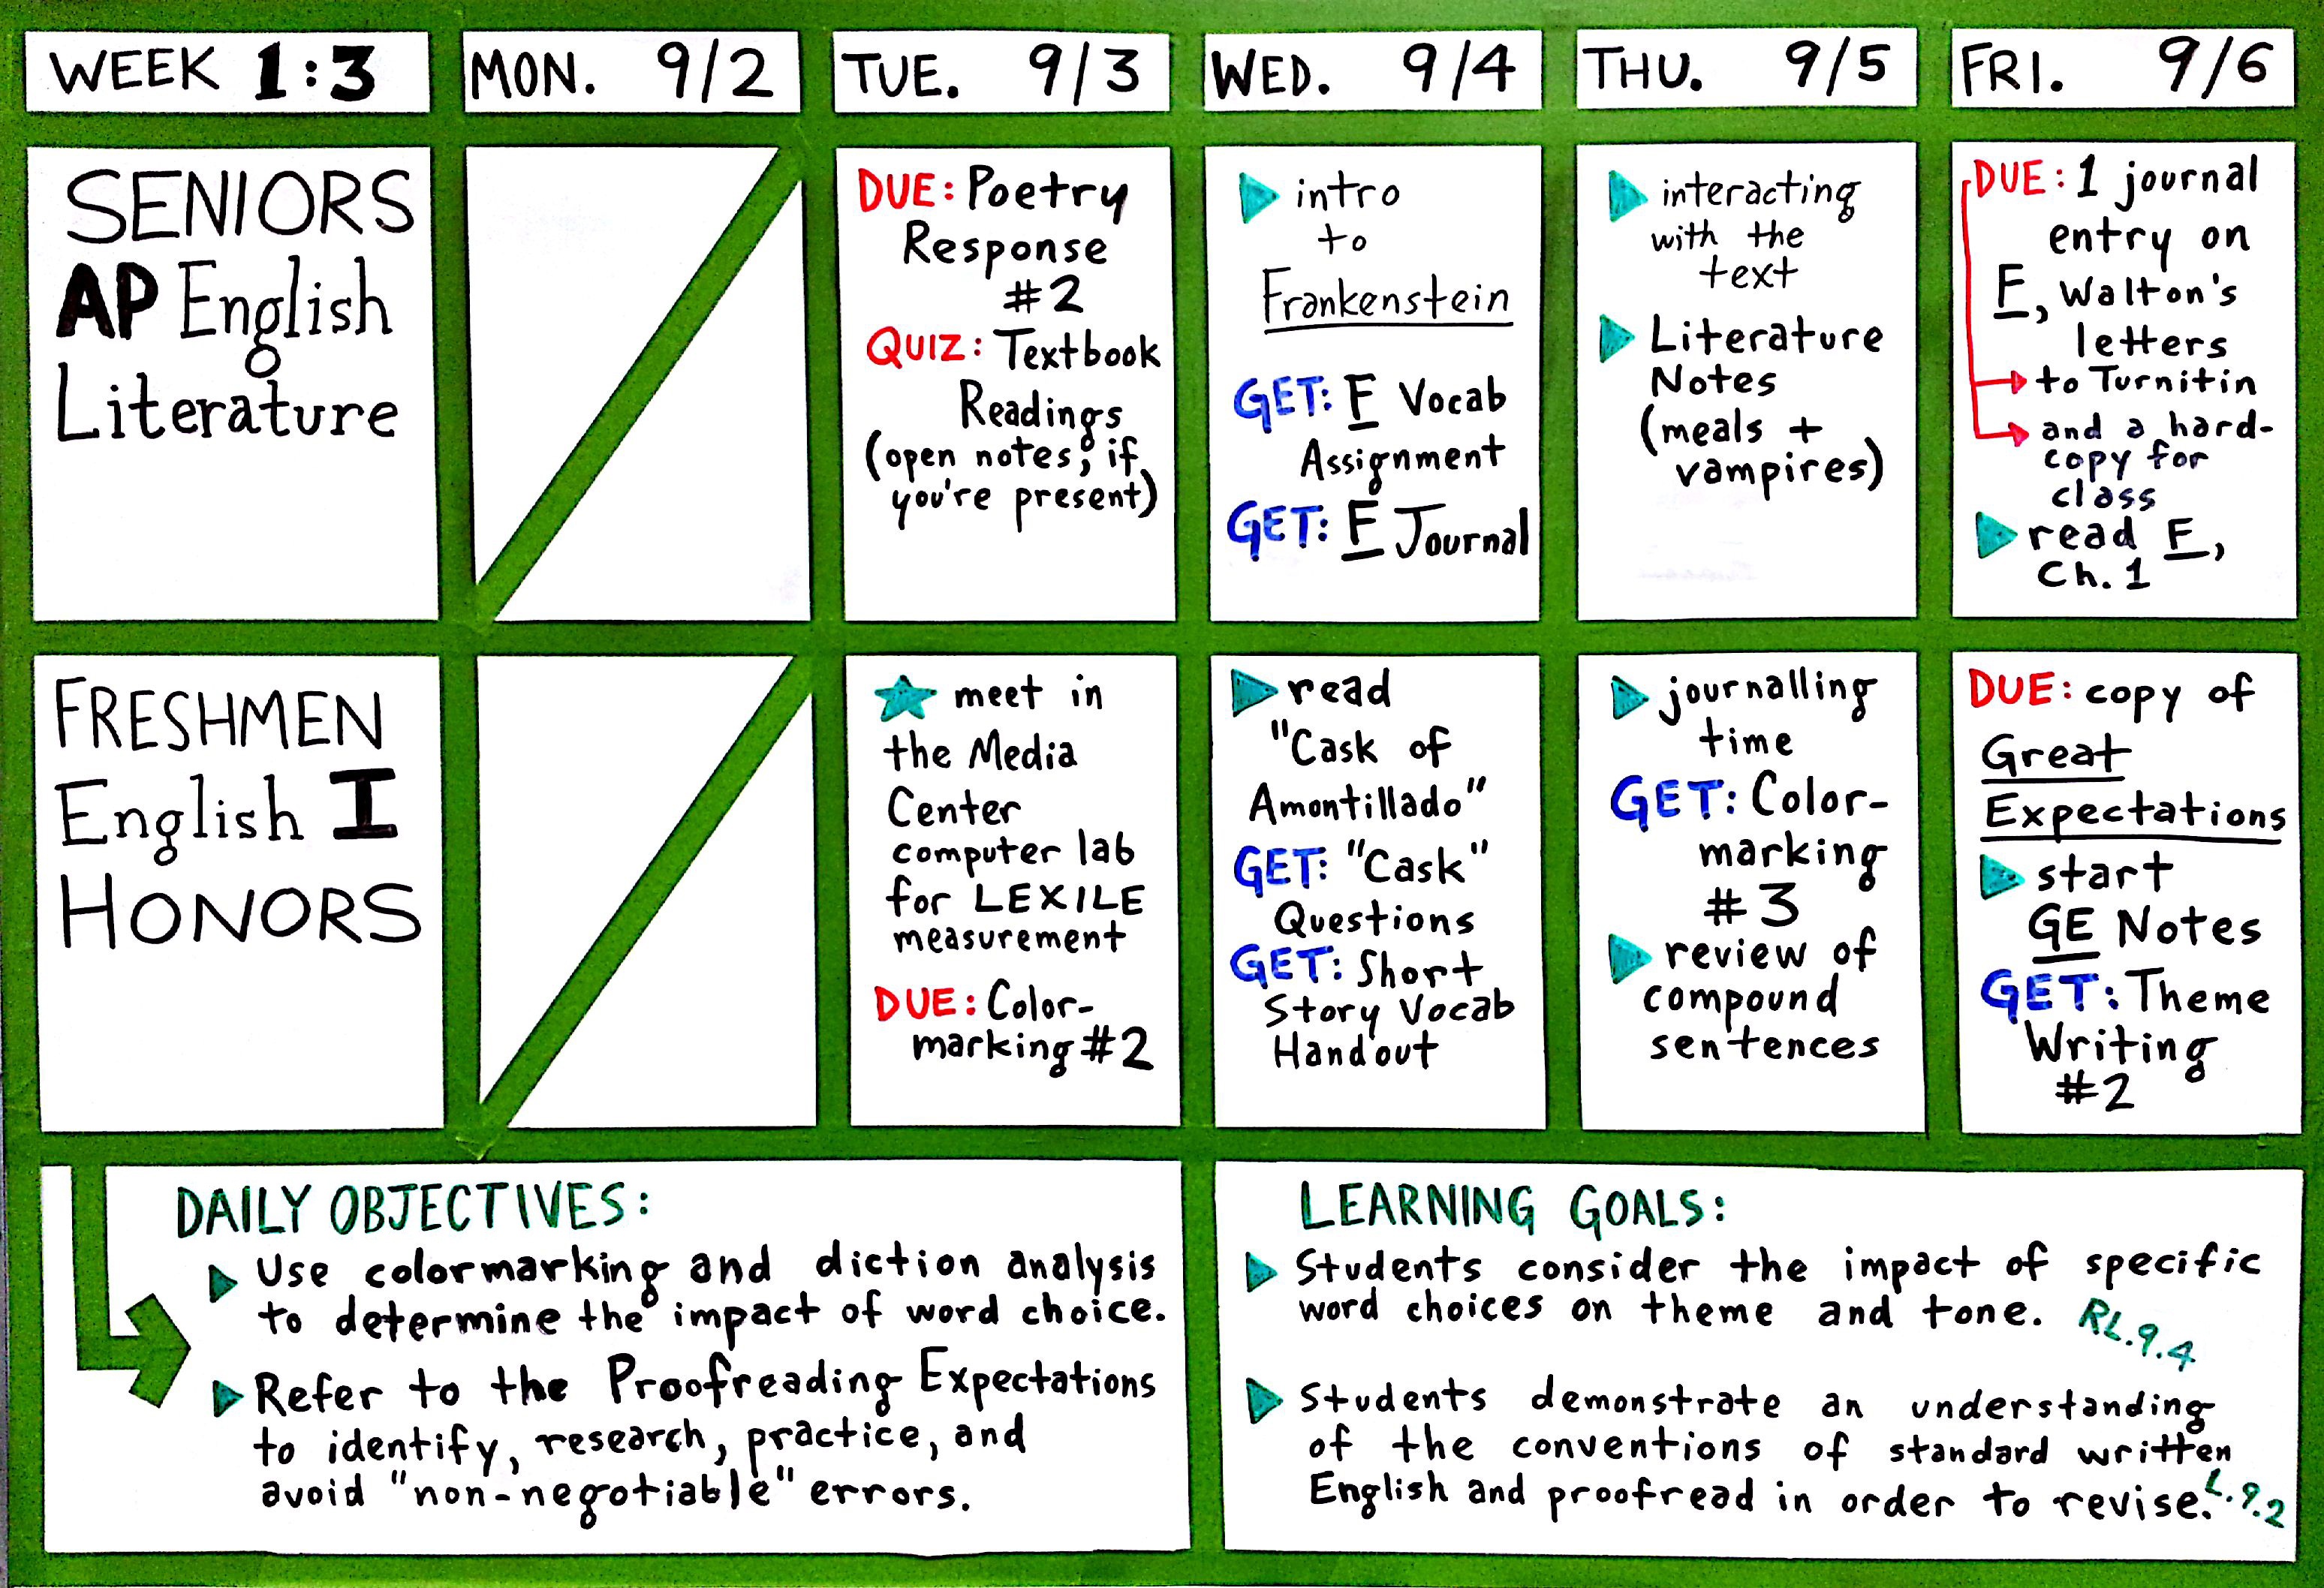 WEEK 1:3
MON. 9/2
TUE. 9/3
WED. 9/4
THU. 9/5
FRI. 9/6
SENIORS
AP English
Literature
DUE: Poetry
Response
#2
QUIZ: Textbook
Readings
(open notes, if
you're present)
intro
to
Frankenstein
GET: F Vocab
Assignment
GET: F Journal
interacting
with the
text
Literature
Notes
(meals +
vampires)
DUE: 1 journal
entry on
F, Walton's
letters
to Turnitin
and a hard-
copy for
class
read F,
Ch. 1
FRESHMEN
English I
HONORS
meet in
the Media
Center
computer lab
for LEXILE
measurement
DUE: Color-
marking #2
read
"Cask of
Amontillado"
GET: "Cask"
Questions
GET: Short
Story Vocab
Handout
journalling
time
GET: Color-
marking
#3
review of
compound
sentences
DUE: copy of
Great
Expectations
start
GE Notes
GET: Theme
Writing
#2
DAILY OBJECTIVES:
Use colormarking and diction analysis
to determine the impact of word choice.
Refer to the Proofreading Expectations
to identify, research, practice, and
avoid "non-negotiable" errors.
LEARNING GOALS:
Students consider the impact of specific
word choices on theme and tone. RL.9.4
Students demonstrate an understanding
of the conventions of standard written
English and proofread in order to revise. L.9.2